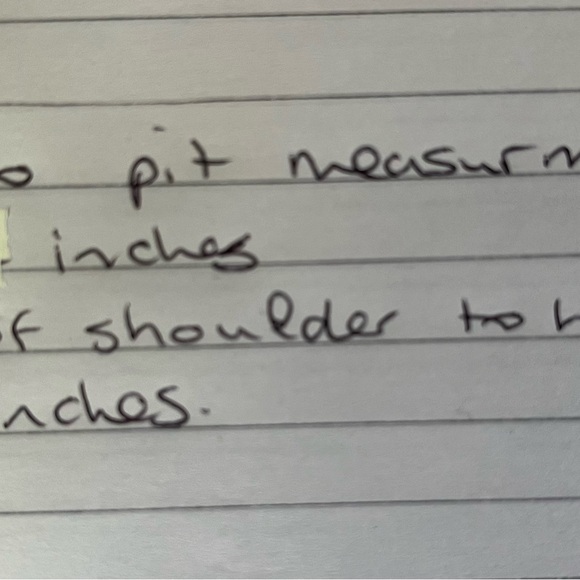 o pit measurm
inches
of shoulder to h
nches.